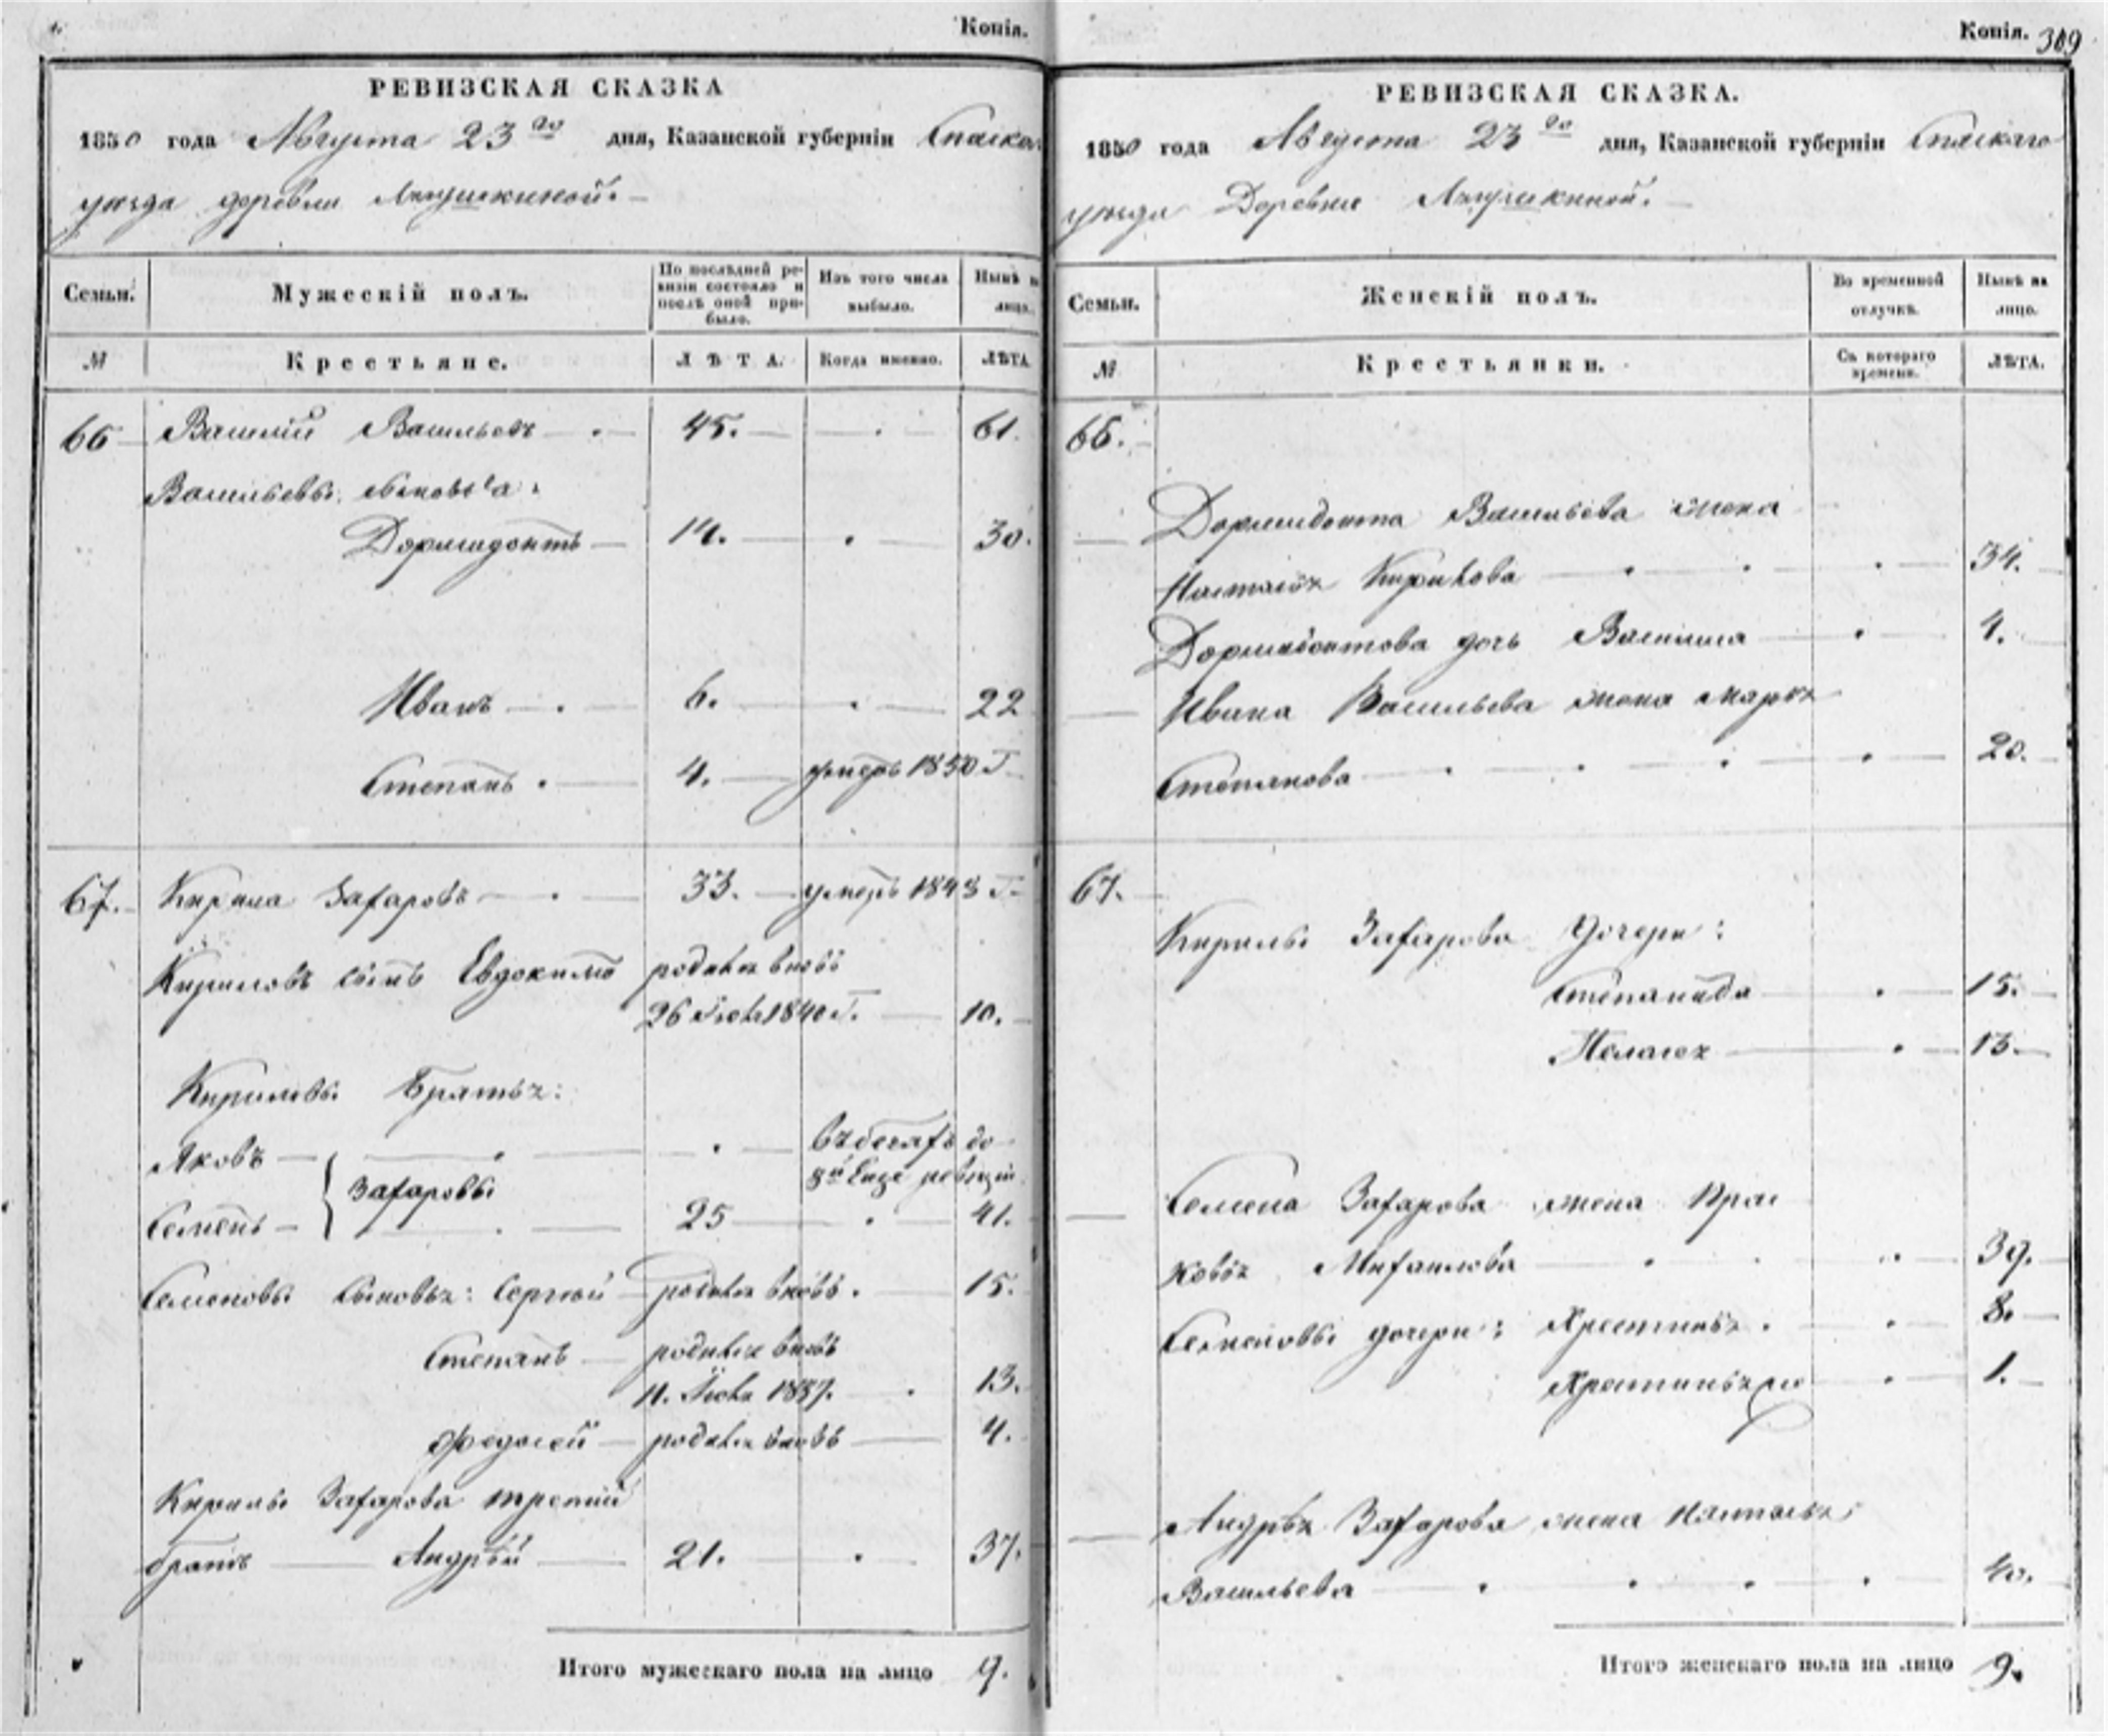 Копія.
РЕВИЗСКАЯ СКАЗКА
1850 года Августа 23го дня, Казанской губерніи Спаскаго
уѣзда деревни
Семьи. Мужескій полъ. По послѣдней ревизіи состояло и послѣ оной прибыло. Изъ того числа выбыло. Нынѣ на лицо.
№ Крестьяне. ЛѢТА. Когда именно. ЛѢТА
66 Василий Васильевъ 45. 61.
Васильевы сыновья:
Дормидонтъ 14. 30.
Иванъ 6. 22
Степанъ 4. умеръ 1850 Г
67. Кирила Захаровъ 33. умеръ 1843 Г
Кириловъ сынъ Евдокимъ родился вновь
26 Июля 1840 Г. 10.
Кириловы братья:
Яковъ въ бегахъ до
Захаровы 8й еще ревизіи
Семенъ 25 41.
Семеновы сыновья: Сергѣй родился вновь. 15.
Степанъ родился вновь
11. Июля 1837. 13.
Федосей родился вновь 4.
Кирилы Захарова третий
братъ Андрѣй 21. 37.
Итого мужескаго пола на лицо 9.
Копія. 309
РЕВИЗСКАЯ СКАЗКА.
1850 года Августа 23го дня, Казанской губерніи Спаскаго
уѣзда Деревни
Семьи. Женскій полъ. Во временной отлучкѣ. Нынѣ на лицо.
№ Крестьянки. Съ котораго времени. ЛѢТА.
66.
Дормидонта Васильева жена
Настасья Кирилова 34.
Дормидонтова дочь Василиса 4.
Ивана Васильева жена Марья
Степанова 20.
67.
Кирилы Захарова дочери:
Степанида 15.
Пелагея 13.
Семена Захарова жена Прас
ковья Михаилова 39.
Семеновы дочери: Крестинья. 8.
1.
Андрѣя Захарова жена Настасья
Васильева 40.
Итого женскаго пола на лицо 9.